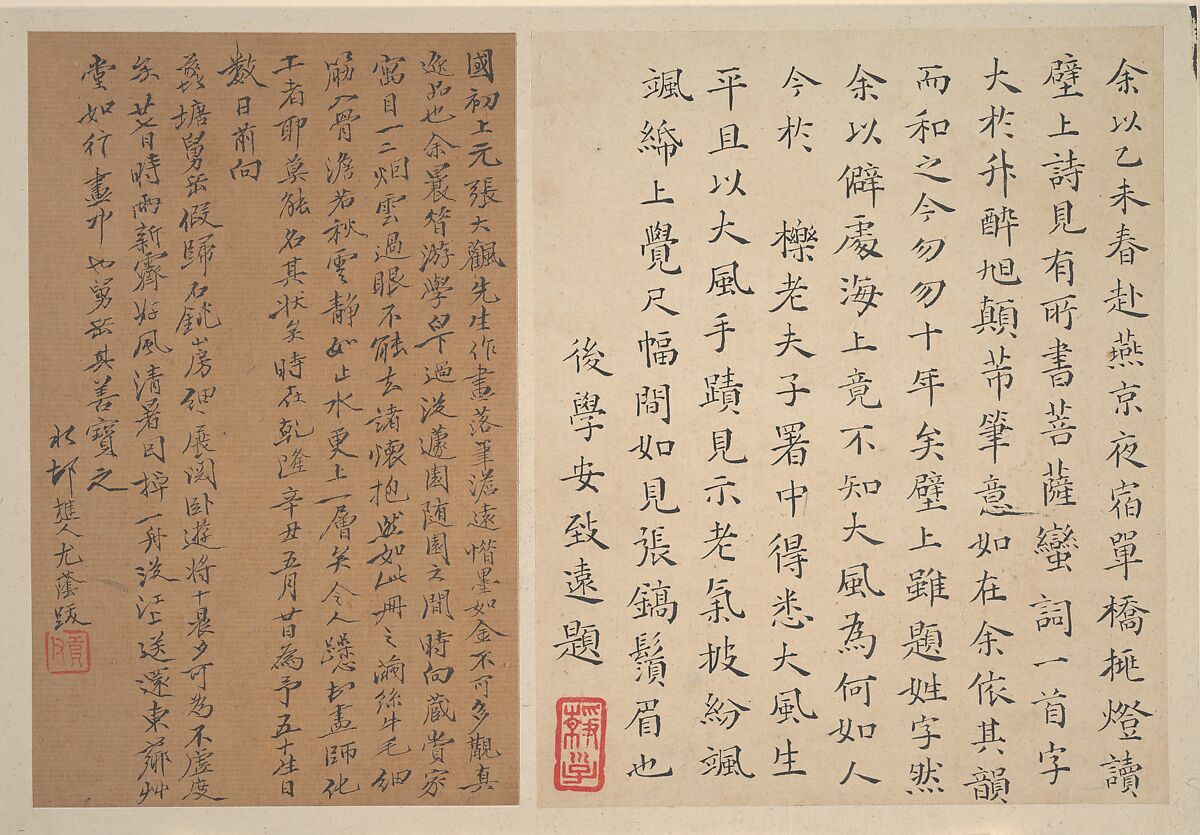 余以乙未春赴燕京夜宿單橋挑燈讀
壁上詩見有所書菩薩蠻詞一首字
大於升醉旭顛芾筆意如在余依其韻
而和之今勿勿十年矣壁上雖題姓字然
余以僻處海上竟不知大風為何如人
今於 櫟老夫子署中得悉大風生
平且以大風手蹟見示老氣披紛颯
颯紙上覺尺幅間如見張鎬鬚眉也
後學安致遠題
國初上元張大風先生作畫落筆澹遠惜墨如金不可多觀真
逸品也余曩昔游學白下過從蘧園随園之間時向藏賞家
寓目一二烟雲過眼不能去諸懷抱然如此冊之繭絲牛毛細
筋入骨澹若秋雲靜如止水更上一層矣令人疑畫師化
工者耶莫能名其狀矣時在乾隆辛丑五月廿日為予五十生日
數日前向
塘舅氏假歸石銚山房細展閱臥遊將十晨夕可為不虛度
矣廿七日時雨新霽好風清暑因掉一舟從江上送還東
堂如行畫中也舅氏其善寶之
水邨樵人尤蔭跋